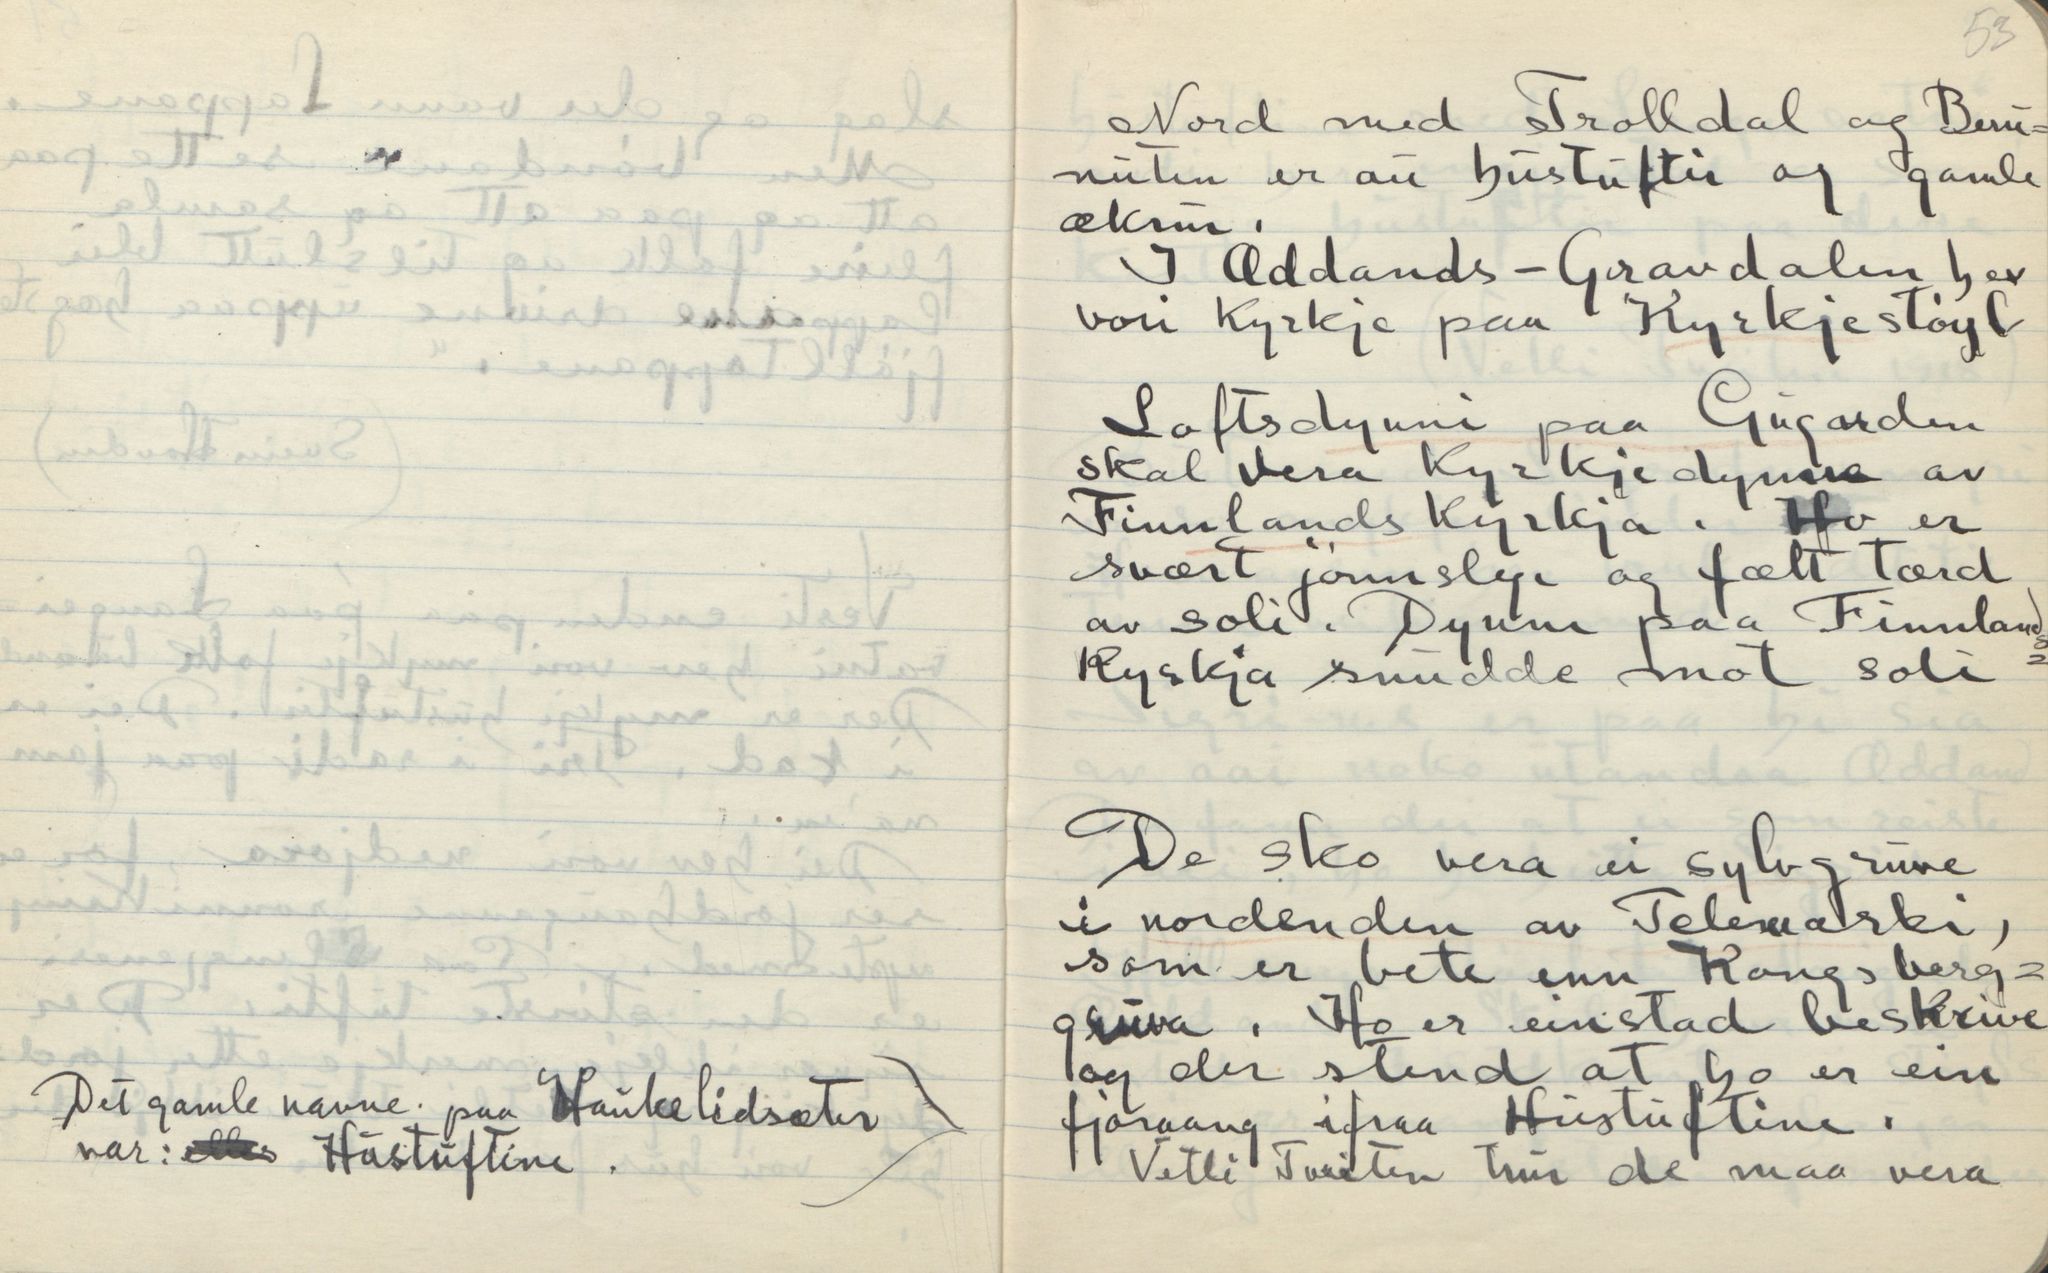 Det gamle navne. paa Haukelidsæter
var: Hustuftine.
53
Nord med Trolldal og Beru=
nuten er au hustuftir og gamle
ækrur.
I Øddands-Gravdalen hev
vori kyrkje paa Kyrkjestøyl
Loftsdynni paa Gugarden
skal vera Kyrkjedynna av
Finnlandskyrkja. Ho er
svært jónnslegi og fælt tærd
av soli. Dynni paa Finnlands=
kyrkja snudde mot soli
De sko vera ei sylvgruve
i nordenden av Telemarki,
som er bete enn Kongsberg=
gruva. Ho er einstad beskrive
og der stend at ho er ein
fjoraang ifraa Hustuftine.
Vetli Tveiten trur de maa vera